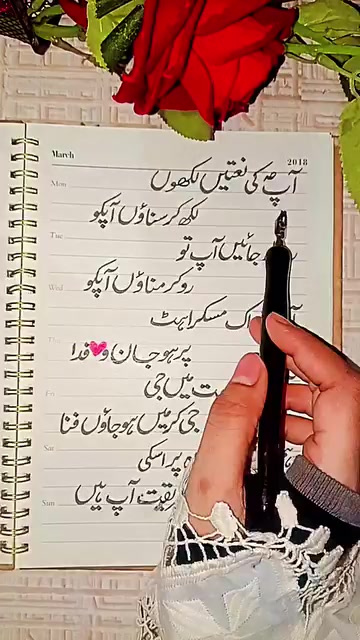 March 2018
Mon
آپؐ کی نعتیں لکھوں
لکھ کر سناؤں آپکو
Tue
جائیں آپ تو
Wed
رو کر مناؤں آپکو
ک مسکراہٹ
پر ہو جان و💗فدا
Fri
ت میں جی
جی کر میں ہو جاؤں فنا
Sat
پر اسکی
Sun
آپ ہیں